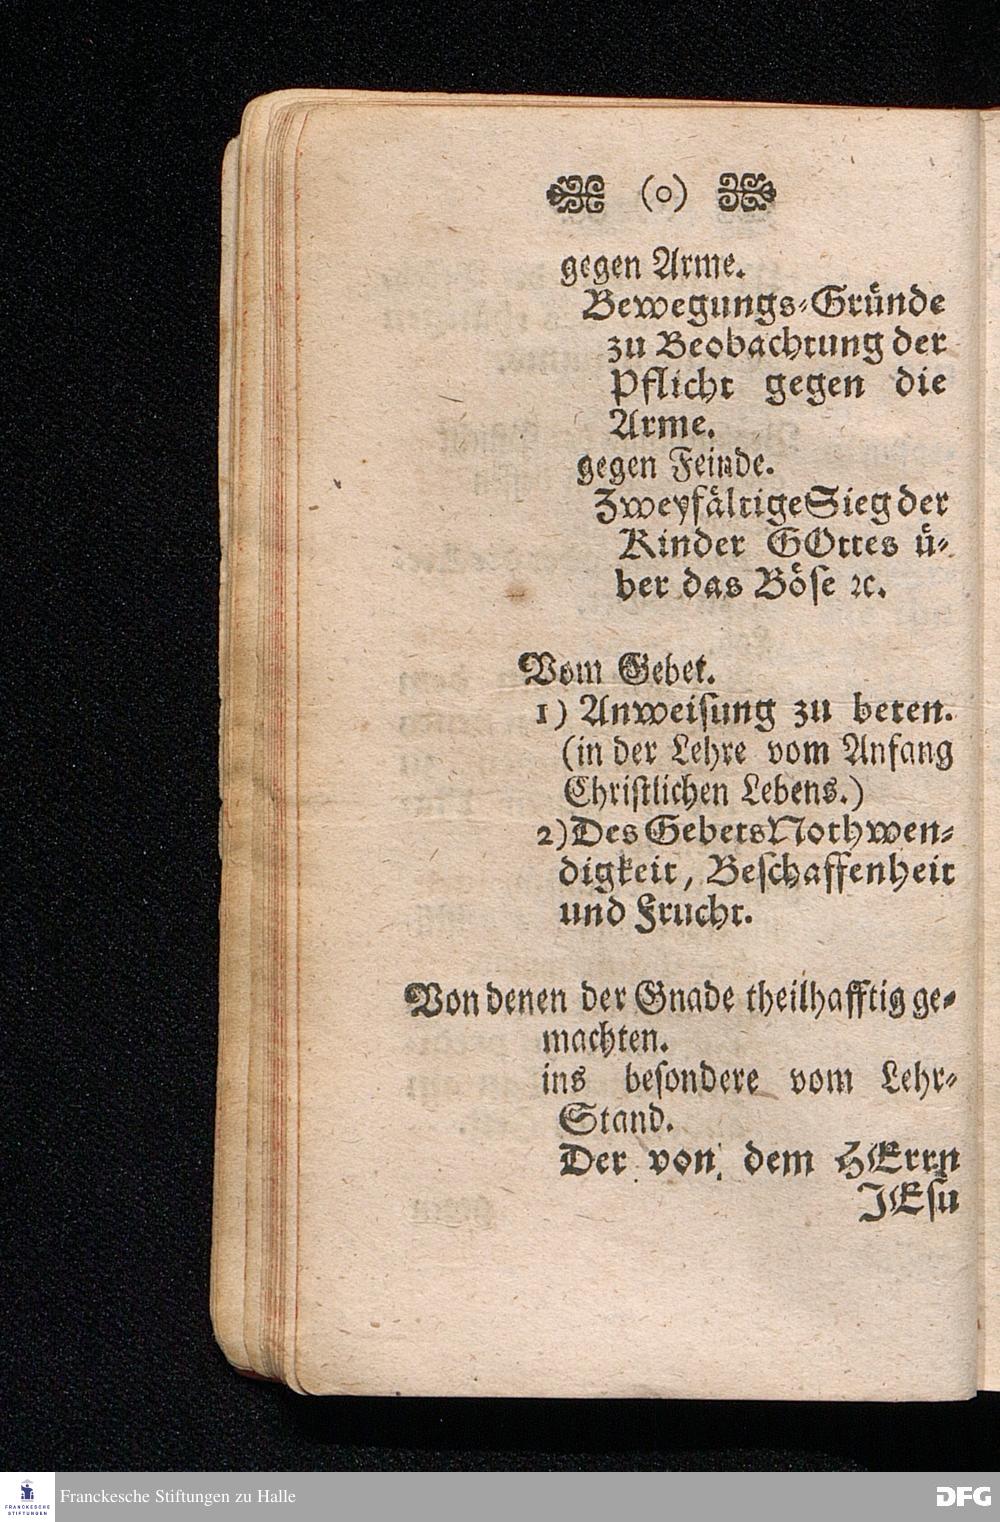 (o)
gegen Arme.
Bewegungs-Gründe
zu Beobachtung der
Pflicht gegen die
Arme.
gegen Feinde.
Zweyfältige Sieg der
Kinder GOttes ü-
ber das Böse ꝛc.
Vom Gebet.
1) Anweisung zu beten.
(in der Lehre vom Anfang
Christlichen Lebens.)
2) Des Gebets Nothwen-
digkeit, Beschaffenheit
und Frucht.
Von denen der Gnade theilhafftig ge-
machten.
ins besondere vom Lehr-
Stand.
Der von dem HErrn
JEsu
FRANCKESCHE
STIFTUNGEN
Franckesche Stiftungen zu Halle
DFG